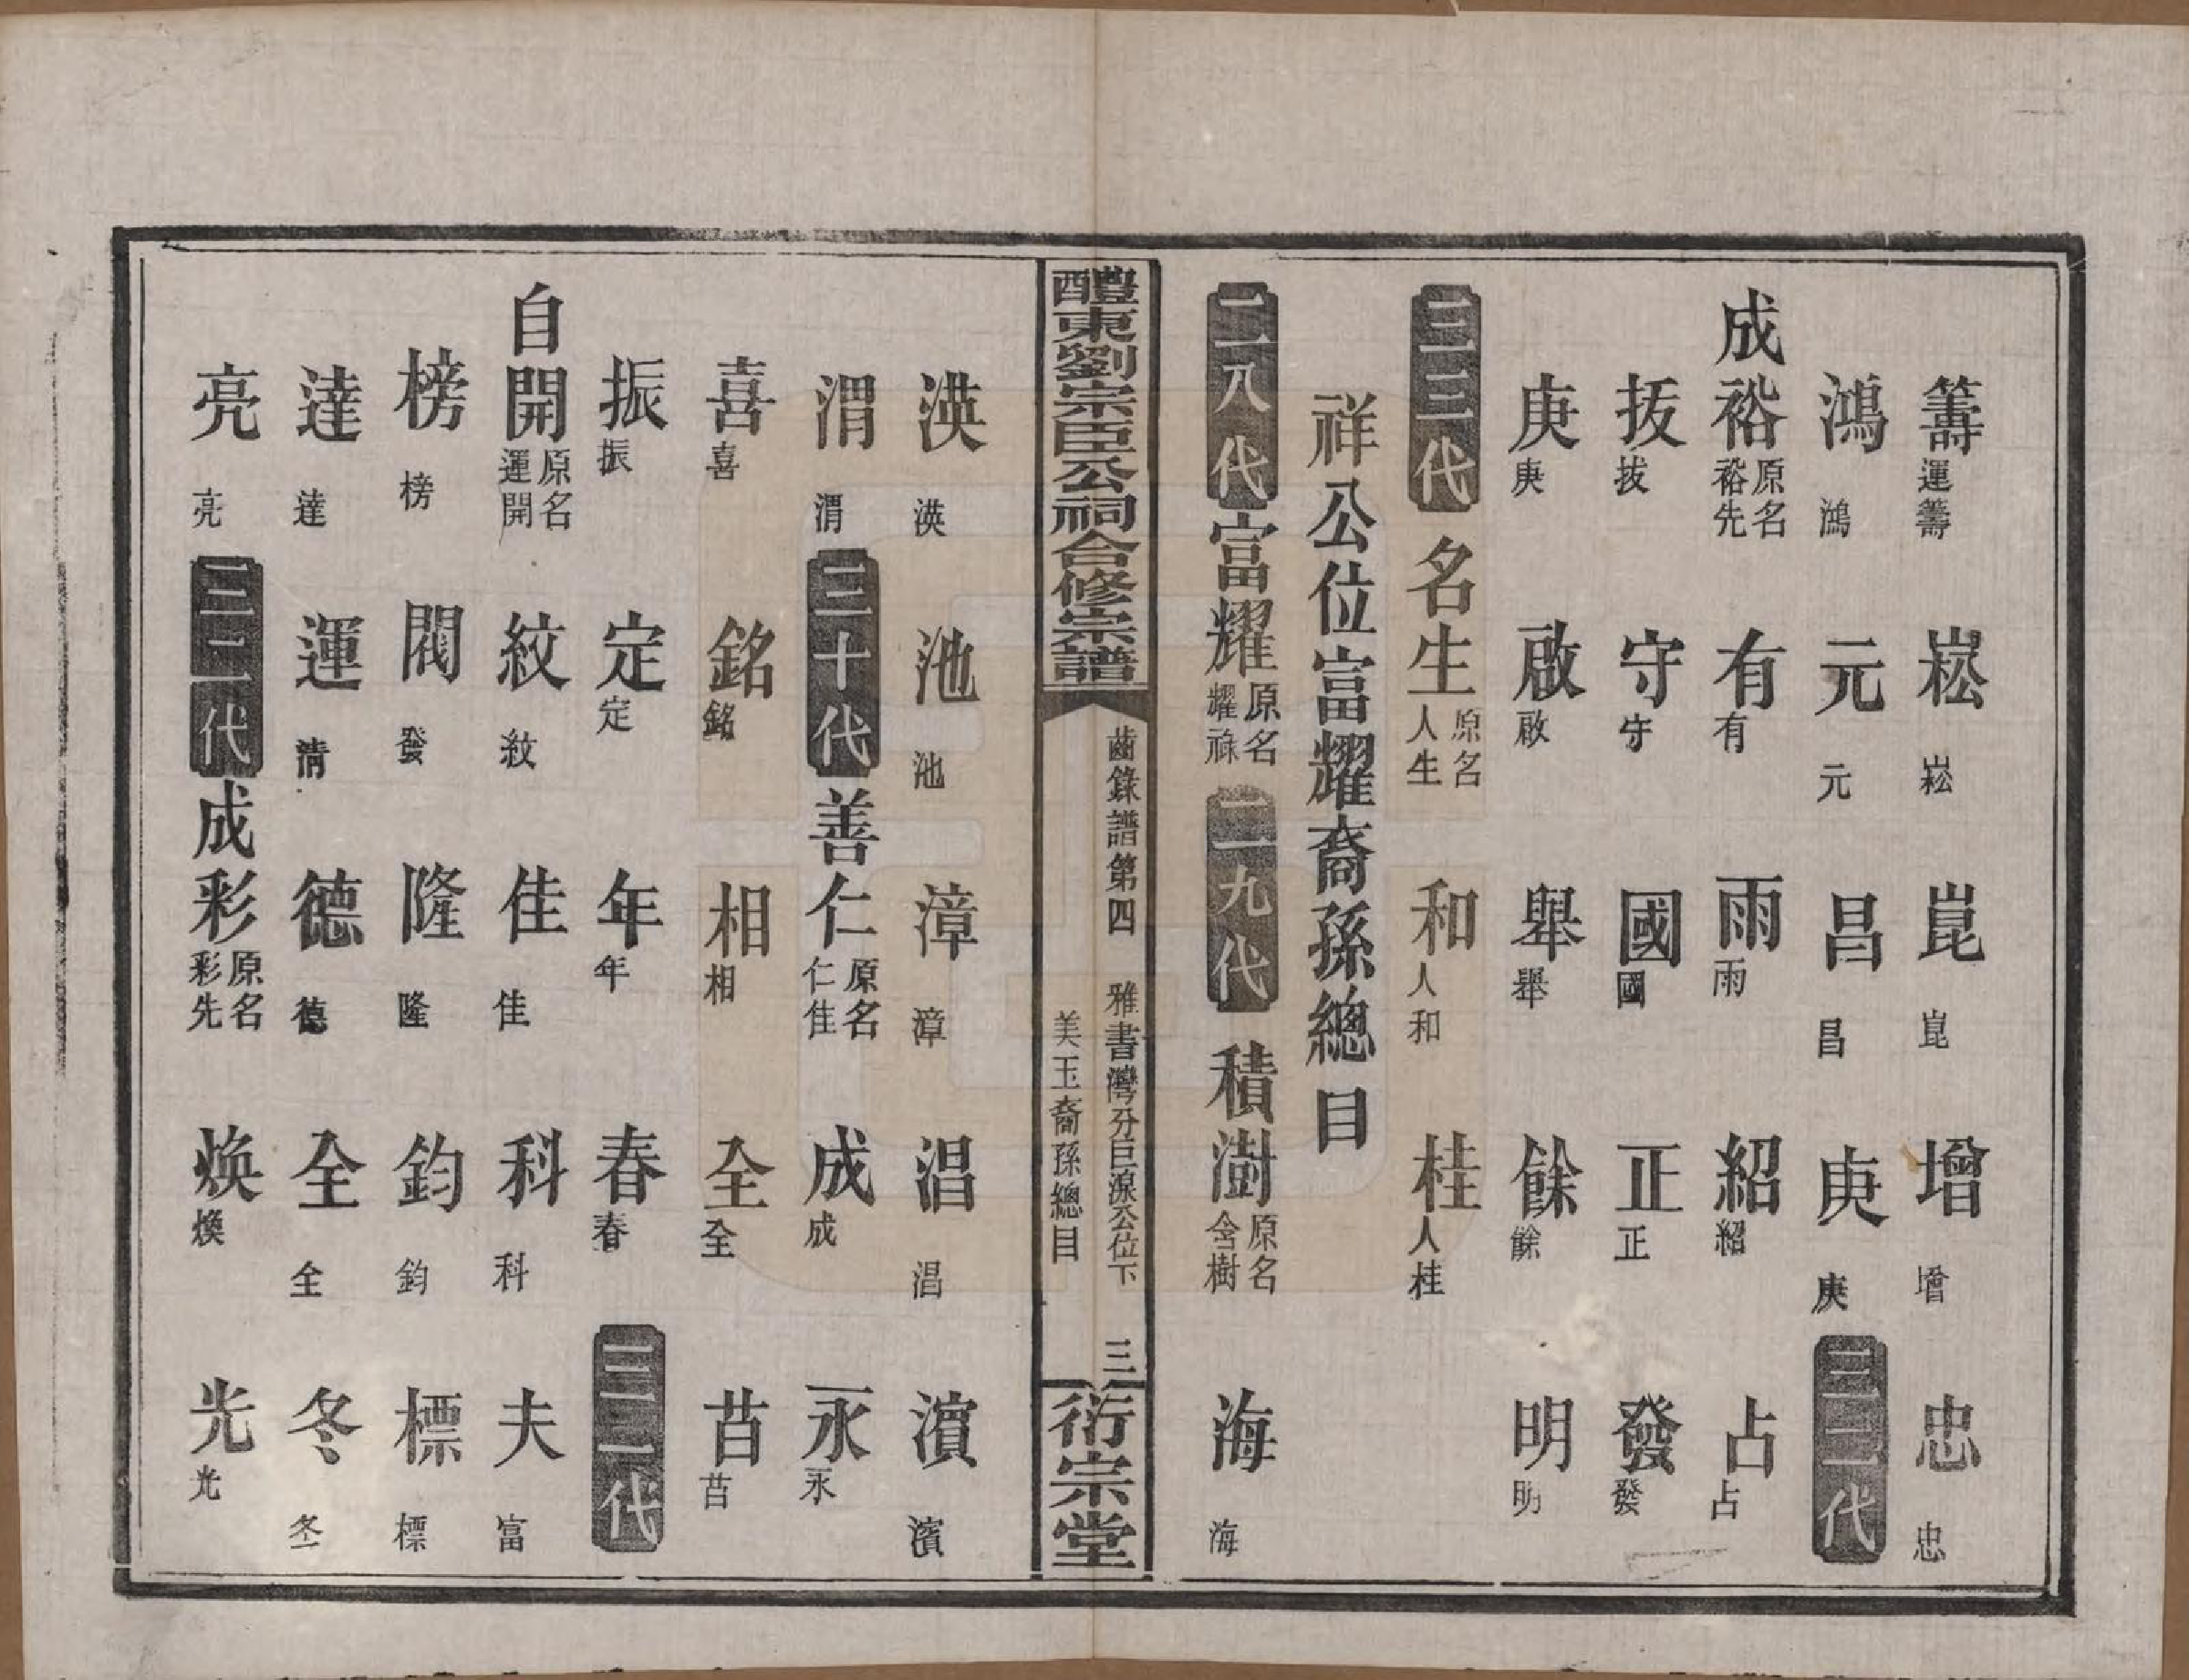 籌運籌 崧崧 崑崑 增增 忠忠
鴻鴻 元元 昌昌 庚庚 三二代
成裕原名裕先 有有 雨雨 紹紹 占占
拔拔 守守 國國 正正 發發
庚庚 啟啟 舉舉 餘餘 明明
三三代 名生原名人生 和人和 桂人桂
祥公位富耀裔孫總目
二八代 富耀原名耀祿 二九代 積澍原名含樹 海海
醴東劉宗臣公祠合修宗譜 齒錄譜第四 雅書灣分巨源公位下 美玉裔孫總目 三 衍宗堂
渶渶 池池 漳漳 淐淐 濱濱
渭渭 三十代 善仁原名仁佳 成成 永永
喜喜 銘銘 相相 全全 苩苩
振振 定定 年年 春春 三一代
自開原名運開 紋紋 佳佳 科科 夫富
榜榜 閥發 隆隆 鈞鈞 標標
達達 運清 德德 全全 冬冬
亮亮 三二代 成彩原名彩先 煥煥 光光